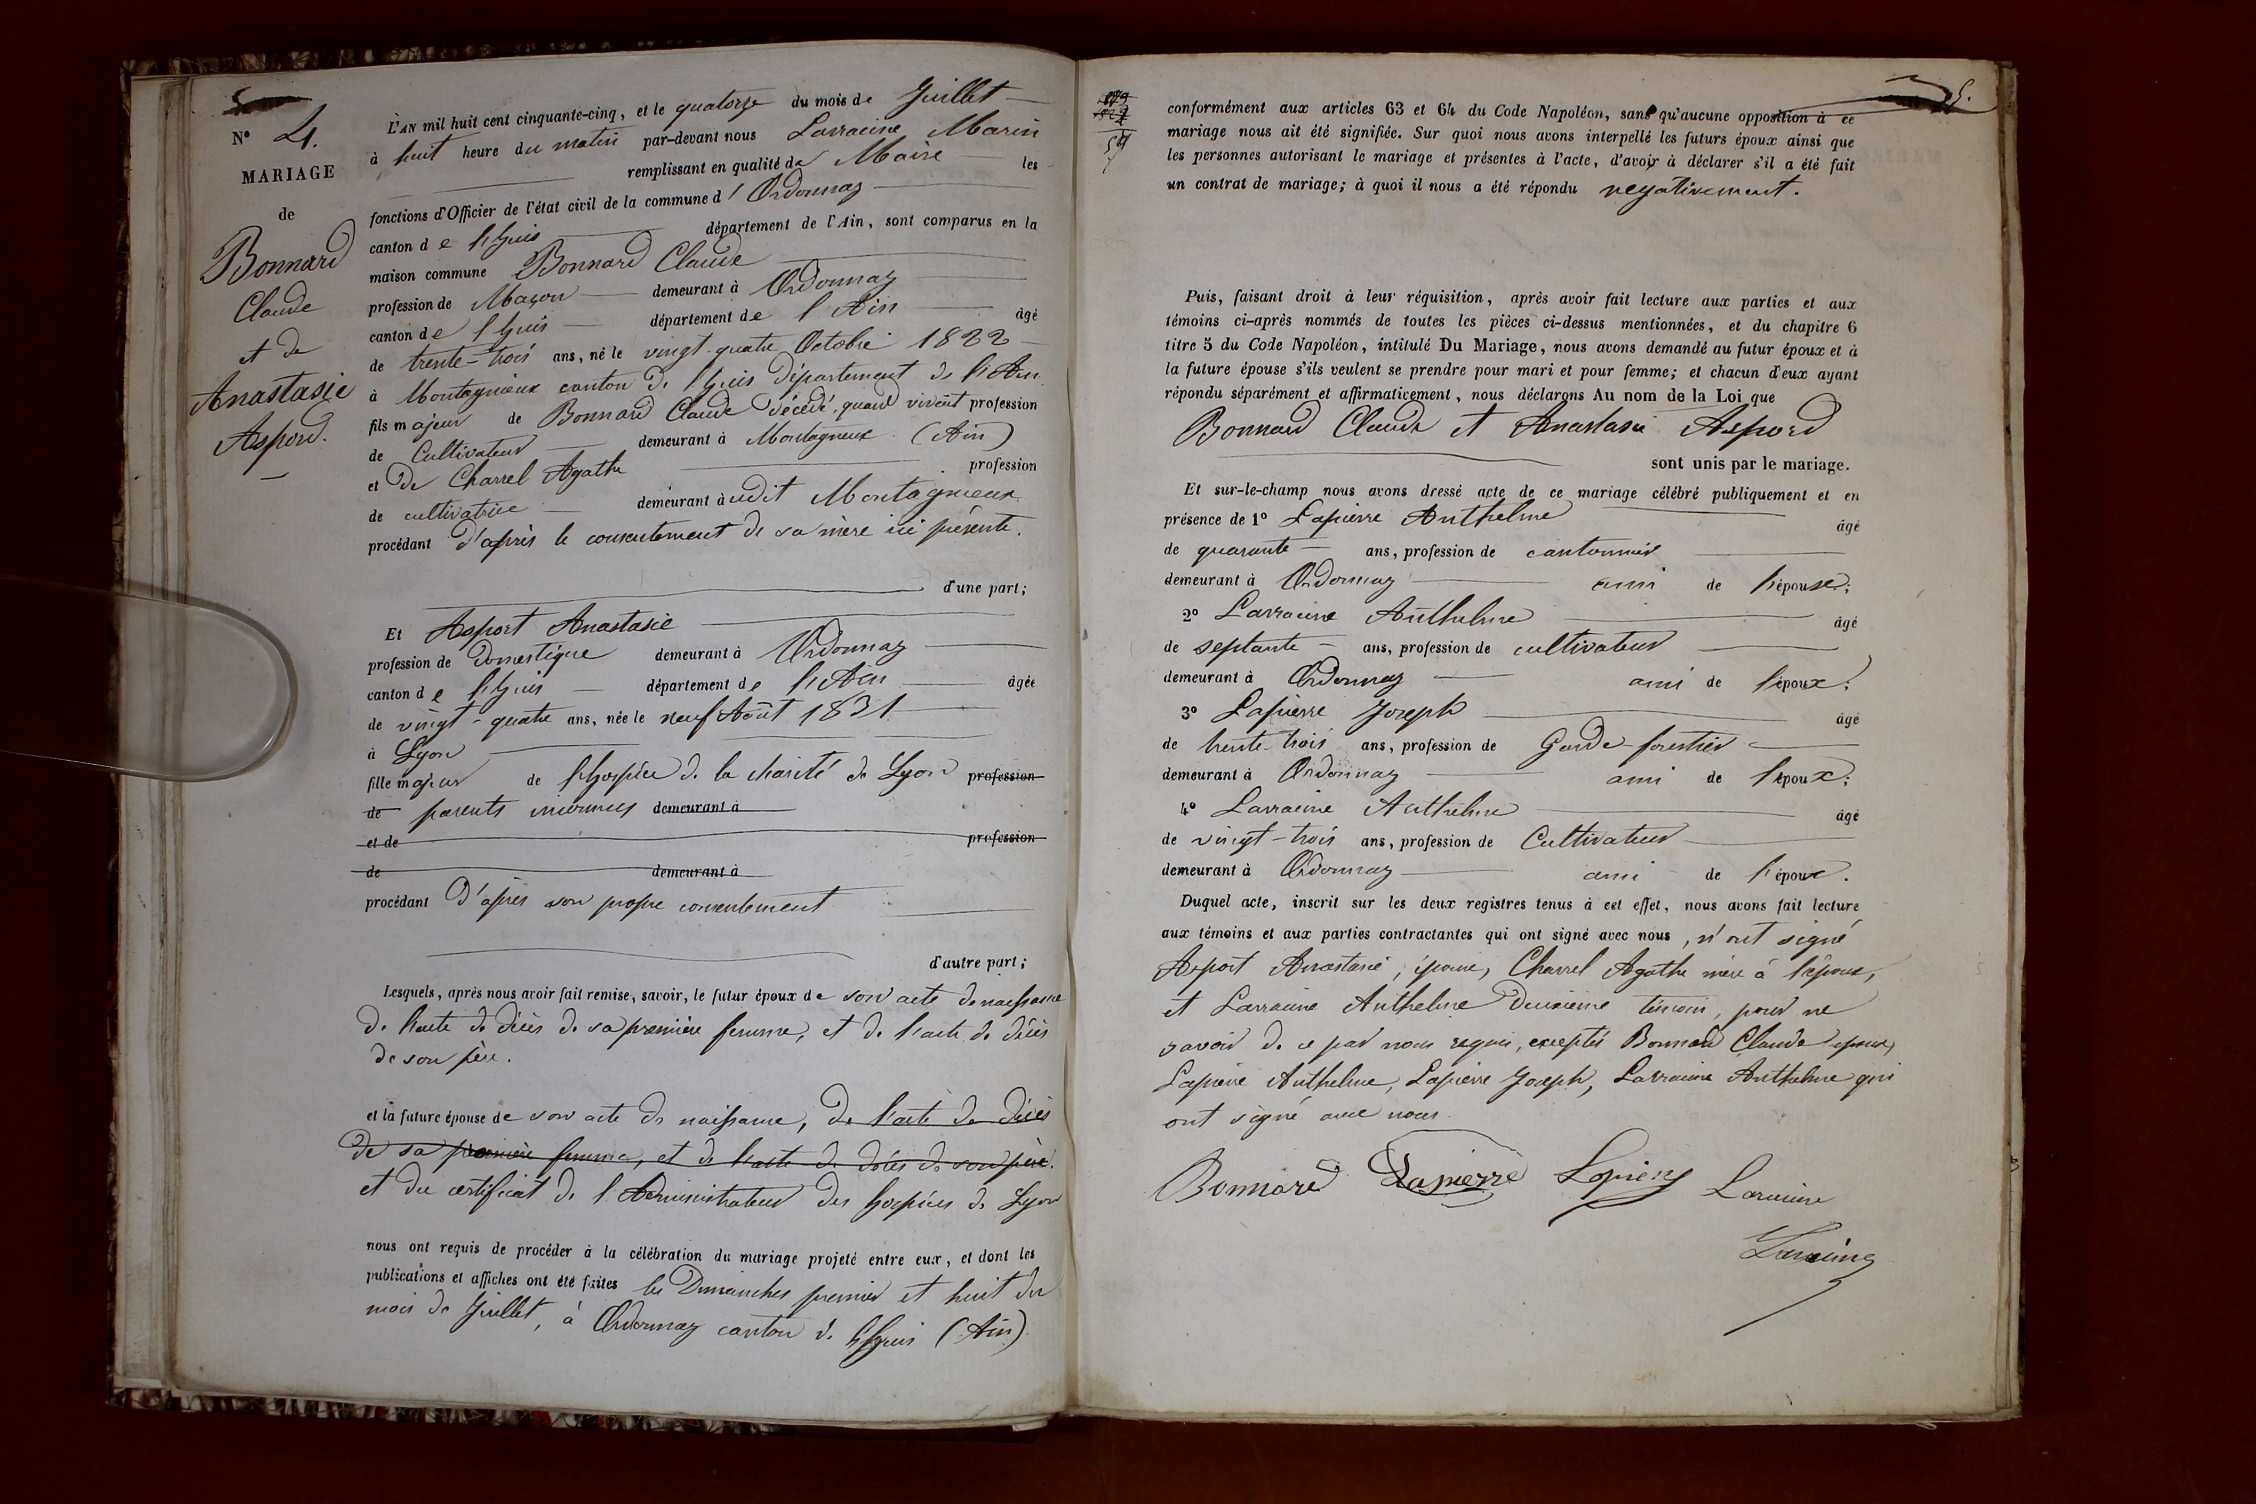 N° 4.
MARIAGE
de
Bonnard
Claude
et de
Anastasie
Aspord.
L'AN mil huit cent cinquante-cinq, et le quatorze du mois de Juillet
à huit heure du matin par-devant nous Larracine Marin
remplissant en qualité de Maire les
fonctions d'Officier de l'état civil de la commune d'Ordonnaz
canton de lhuis département de l'Ain, sont comparus en la
maison commune Bonnard Claude
profession de Maçon demeurant à Ordonnaz
canton de lhuis département de l'Ain âgé
de trente-trois ans, né le vingt-quatre Octobre 1822
à Montagnieux canton de lhuis département de l'Ain
fils majeur de Bonnard Claude décédé, quand vivent profession
de Cultivateur demeurant à Montagneux (Ain)
et de Charrel Agathe profession
de cultivatrice demeurant à udit Montagnieux
procédant d'après le consentement de sa mère ici présente.
d'une part;
Et Asport Anastasie
profession de domestique demeurant à Ordonnaz
canton de lhuis département de l'Ain âgée
de vingt-quatre ans, née le neuf Août 1831
à Lyon
fille majeur de l'hospice de la charité de Lyon profession
de parents inconnus demeurant à
et de profession
de demeurant à
procédant d'après son propre consentement
d'autre part;
Lesquels, après nous avoir fait remise, savoir, le futur époux de son acte de naissance
de l'acte de décès de sa première femme, et de l'acte de décès
de son père.
et la future épouse de son acte de naissance, de l'acte de décès
de sa première femme, et de l'acte de décès de son père.
et du certificat de l'Administrateur des hospices de Lyon
nous ont requis de procéder à la célébration du mariage projeté entre eux, et dont les
publications et affiches ont été faites les Dimanches premier et huit du
mois de Juillet, à Ordonnaz canton de lhuis (Ain)
5.
conformément aux articles 63 et 64 du Code Napoléon, sans qu'aucune opposition à ce
mariage nous ait été signifiée. Sur quoi nous avons interpellé les futurs époux ainsi que
les personnes autorisant le mariage et présentes à l'acte, d'avoir à déclarer s'il a été fait
un contrat de mariage; à quoi il nous a été répondu negativement.
Puis, faisant droit à leur réquisition, après avoir fait lecture aux parties et aux
témoins ci-après nommés de toutes les pièces ci-dessus mentionnées, et du chapitre 6
titre 5 du Code Napoléon, intitulé Du Mariage, nous avons demandé au futur époux et à
la future épouse s'ils veulent se prendre pour mari et pour femme; et chacun d'eux ayant
répondu séparément et affirmativement, nous déclarons Au nom de la Loi que
Bonnard Claude et Anastasie Aspord
sont unis par le mariage.
Et sur-le-champ nous avons dressé acte de ce mariage célébré publiquement et en
présence de 1° Lapierre Anthelme âgé
de quarante ans, profession de cantonnier
demeurant à Ordonnaz ami de l'épouse;
2° Larracine Anthelme âgé
de septante ans, profession de cultivateur
demeurant à Ordonnaz ami de l'époux;
3° Lapierre Joseph âgé
de trente-trois ans, profession de Garde-forestier
demeurant à Ordonnaz ami de l'époux;
4° Larracine Anthelme âgé
de vingt-trois ans, profession de Cultivateur
demeurant à Ordonnaz ami de l'époux.
Duquel acte, inscrit sur les deux registres tenus à cet effet, nous avons fait lecture
aux témoins et aux parties contractantes qui ont signé avec nous, n'ont signé
Asport Anastasie, épouse, Charrel Agathe mère à l'époux,
et Larracine Anthelme Deuxième témoin, pour ne
savoir de ce par nous requis, exceptés Bonnard Claude époux,
Lapierre Anthelme, Lapierre Joseph, Larracine Anthelme qui
ont signé avec nous.
Bonnard Lapierre Lapierre Laracine
Laracine